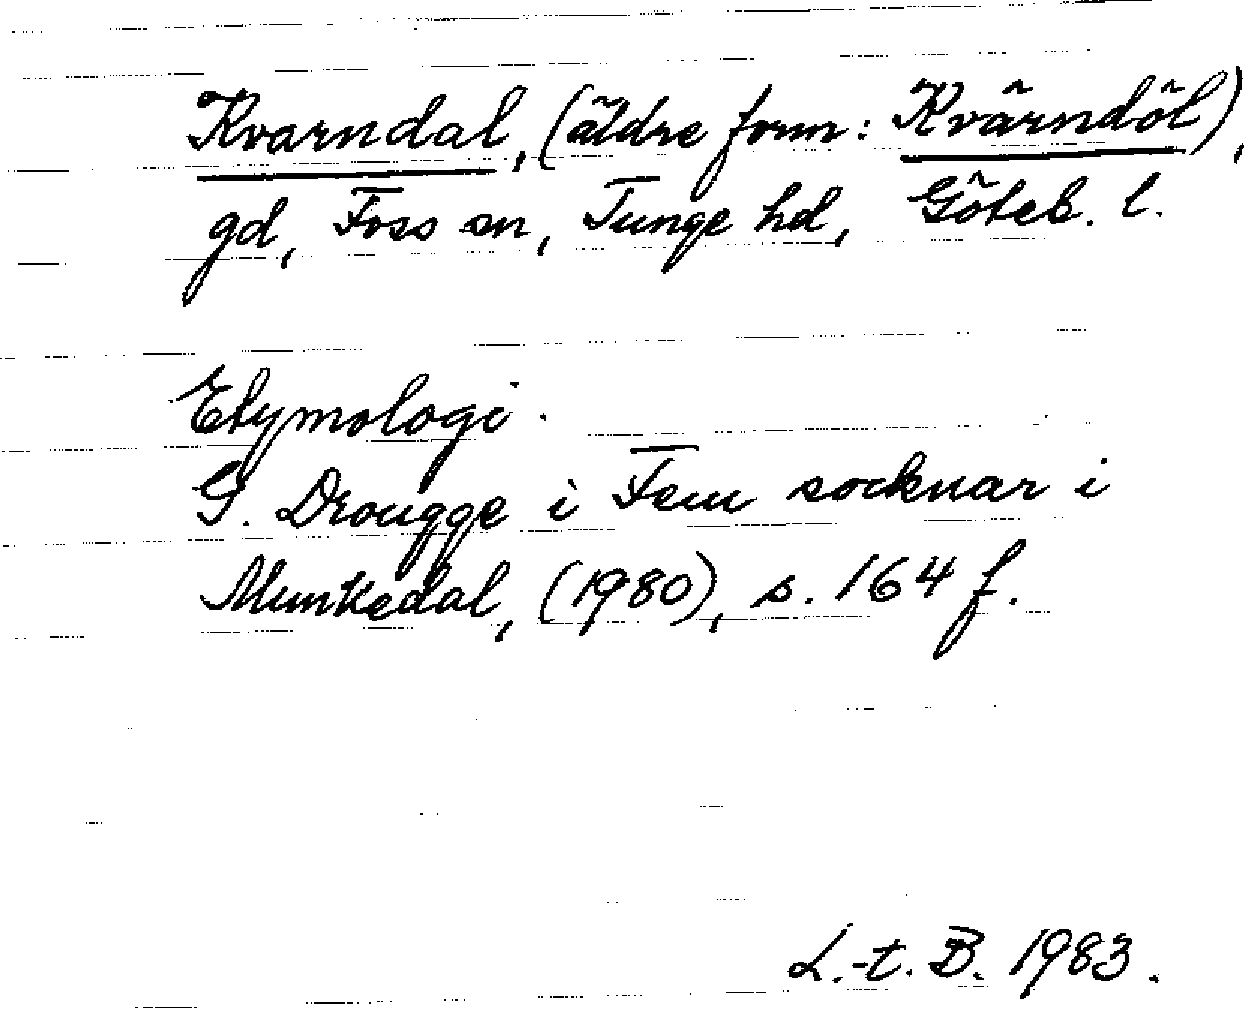 Kvarndal, (äldre form: Kvärndöl),
gd, Foss sn, Tunge hd, Göteb. l.
Etymologi.
G. Drougge i Fem socknar i
Munkedal, (1980), s. 164 f.
L.-t. B. 1983.